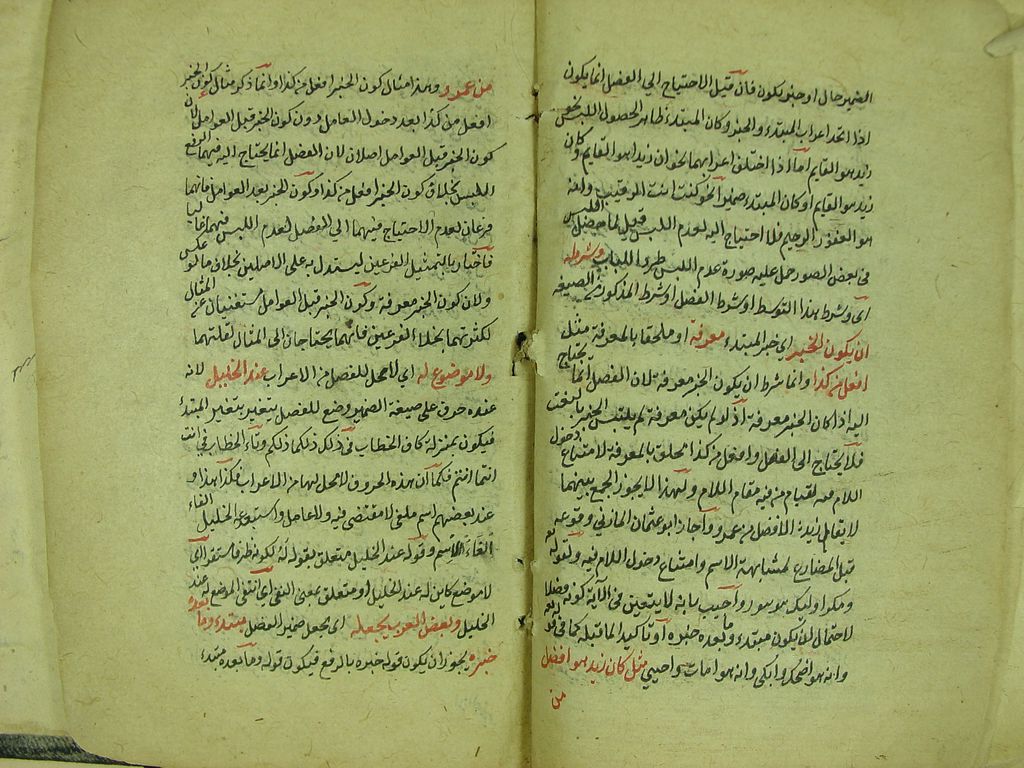 الضمير حال او جنو يكون فان قيل الاحتياج الى الفصل انما يكون
اذا اتحد اعراب المبتدء والخبر وكان المبتدء ظاهر الحصول اللبس نحو
زيد هو القايم اما اذا اختلف اعرابهما نحو ان زيدا هو القايم وكان
زيد هو القايم او كان المبتدء ضميرا نحو كنت انت الرقيب وانه
هو الغفور الرحيم فلا احتياج اليه لعدم اللبس قيل لما حصل اللبس
فى بعض الصور حمل عليه صورة عدم اللبس طردا للباب وشرطه
اى وشرط هذا التوسط او شرط الفصل او شرط المذكور من الصيغة
ان يكون الخبر اي خبر المبتدء معرفة او ملحقا بالمعرفة مثل
افعل من كذا وانما شرط ان يكون الخبر معرفة لان الفصل انما يحتاج
اليه اذا كان الخبر معرفة اذ لو لم يكن معرفة لم يلتبس الخبر بالنعت
فلا يحتاج الى الفصل وافعل من كذا ملحق بالمعرفة لامتناع دخول
اللام فيه لقيام من فيه مقام اللام ولهذا لا يجوز الجمع بينهما
لا يقال زيد الافضل من عمرو واجاز ابو عثمان المازني وقوعه
قبل المضارع لمشابهته الاسم وامتناع دخول اللام فيه ولقوله
ومكر اوليك هو يبور واجيب بانه لا يتعين فى الآية كونه فصلا
لاحتمال ان يكون مبتدء وما بعده خبره او تاكيدا لما قبله كما في قوله
وانه هو اضحك وابكى وانه هو امات واحيي مثل كان زيد هو افضل
من
من عمرو وهذا مثال كون الخبر افعل من كذا وانما ذكر مثال كون الخبر
افعل من كذا بعد دخول العامل دون كون الخبر قبل العوامل لان
كون الخبر قبل العوامل اصلان لان الفصل انما يحتاج اليه فيهما لرفع
اللبس بخلاف كون الخبر افعل من كذا وكون الخبر بعد العوامل فانهما
فرعان لعدم الاحتياج فيهما الى الفصل لعدم اللبس فيهما غالبا
فاختار بالتمثيل الفرعين ليستدل به على الاصلين بخلاف ما لو عكس
ولان كون الخبر معرفة وكون الخبر قبل العوامل مستغنيان عن المثال
لكثرتهما بخلاف الفرعين فانهما يحتاجان الى المثال لقلتهما
ولا موضع له اي لا محل للفصل من الاعراب عند الخليل لانه
عنده حرف على صيغة الضمير وضع للفصل يتغير بتغير المبتدأ
فيكون بمنزلة كاف الخطاب فى ذلك ذلكما ذلكم وتاء الخطاب في انت
انتما انتم فكما ان هذه الحروف لا محل لها من الاعراب فكذا هذا و
عند بعضهم اسم ملغى لا مقتضى فيه ولا عامل واستبعد الخليل الغاء
الغاء الاسم وقوله عند الخليل متعلق بقوله له لكونه ظرفا مستقرا اي
لا موضع كاين له عند الخليل او متعلق بمعنى النفى اي انتفى الموضع له عند
الخليل وبعض العرب يجعله اى يجعل ضمير الفصل مبتدء وما بعده
خبره يجوز ان يكون قوله خبره بالرفع فيكون قوله وما بعده مبتدء